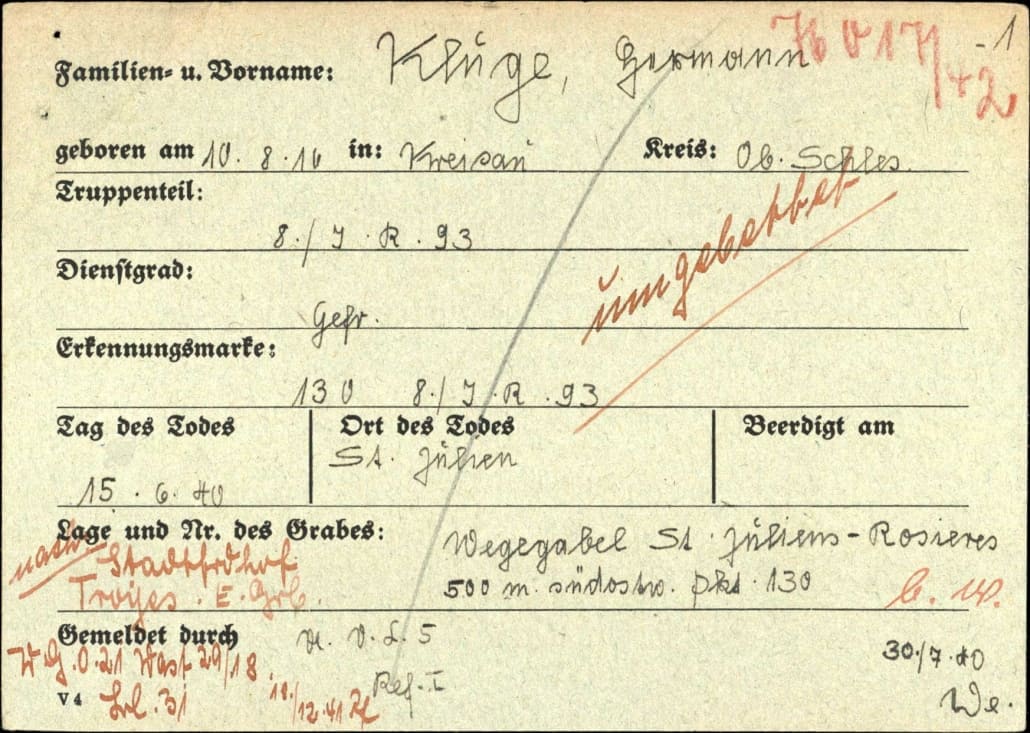 76 017/42 -1
Familien- u. Vorname: Kluge, Hermann
geboren am 10. 8. 16 in: Kreisau Kreis: Ob. Schles.
Truppenteil:
8./ J. R. 93
umgebettet
Dienstgrad:
Gefr.
Erkennungsmarke:
130 8./ J. R. 93
Tag des Todes
15. 6. 40
Ort des Todes
St. Julien
Beerdigt am
Lage und Nr. des Grabes: Wegegabel St. Juliens-Rosieres
nach Stadtfrdhof 500 m. südostw. Pkt. 130
Troyes. E. Grb. b. w.
Gemeldet durch
W. O. L. 5
Ref. I
30./7. 40
We.
W.G.O. 21 West 29/18.
V 4
10./12.41